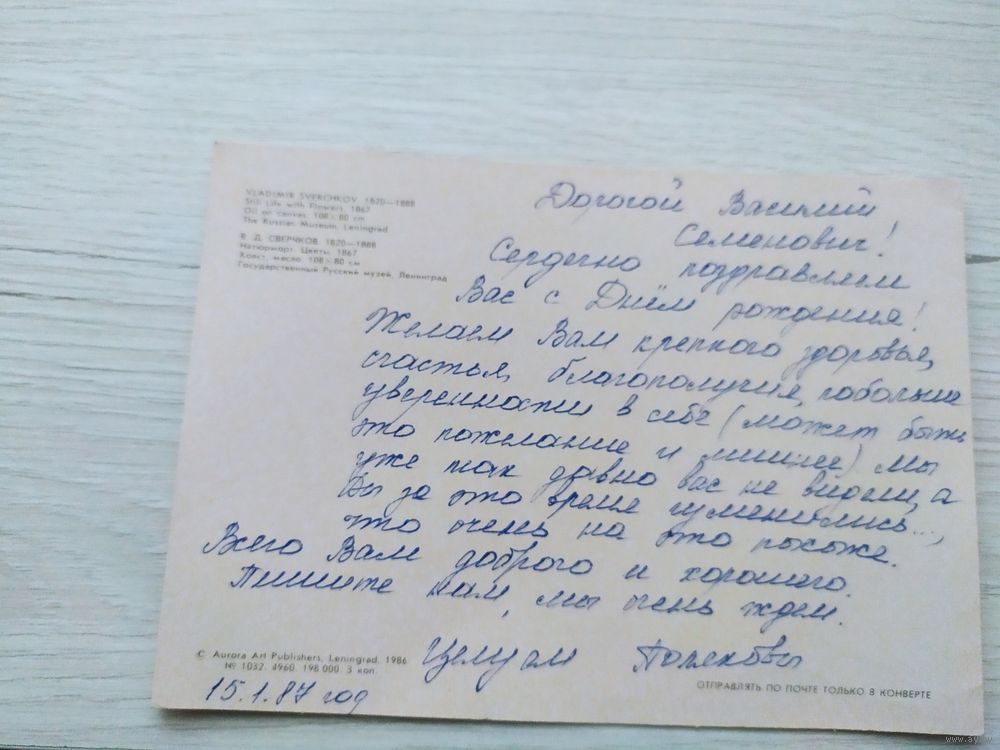 VLADIMIR SVERCHKOV. 1820—1888
Still Life with Flowers. 1867
Oil on canvas. 108×80 cm
The Russian Museum, Leningrad
В. Д. СВЕРЧКОВ. 1820—1888
Натюрморт. Цветы. 1867
Холст, масло. 108×80 см
Государственный Русский музей, Ленинград
Дорогой Василий
Семенович!
Сердечно поздравляем
Вас с Днём рождения!
Желаем Вам крепкого здоровья,
счастья, благополучия, побольше
уверенности в себе (может быть
это пожелание и лишнее) мы
уже так давно вас не видели, а
Вы за это время изменились...,
что очень на это похоже.
Всего Вам доброго и хорошего.
Пишите нам, мы очень ждем.
Целуем
© Aurora Art Publishers, Leningrad, 1986
№ 1037. 4960. 198 000. 3 коп.
15.1.87 год
ОТПРАВЛЯТЬ ПО ПОЧТЕ ТОЛЬКО В КОНВЕРТЕ